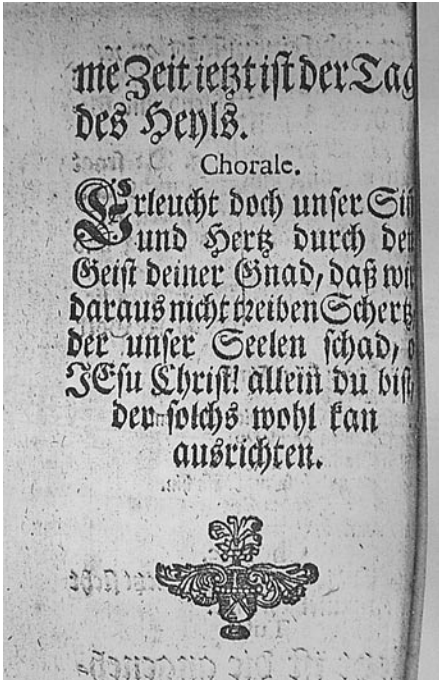 me Zeit ietzt ist der Tag
des Heyls.
Chorale.
Erleucht doch unser
und Hertz durch den
Geist deiner Gnad, daß wir
daraus nicht treiben Schertz
der unser Seelen schad, o
JEsu Christ! allein du bist
der solchs wohl kan
ausrichten.